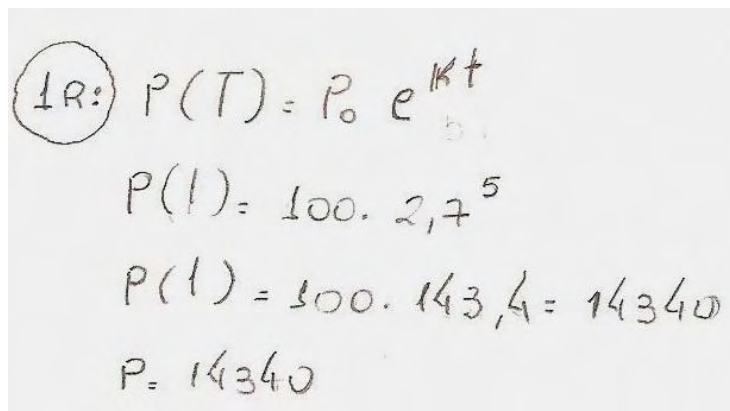 1R: P(T) = P₀ e^kt
P(1) = 100 . 2,7⁵
P(1) = 100 . 143,4 = 14340
P = 14340